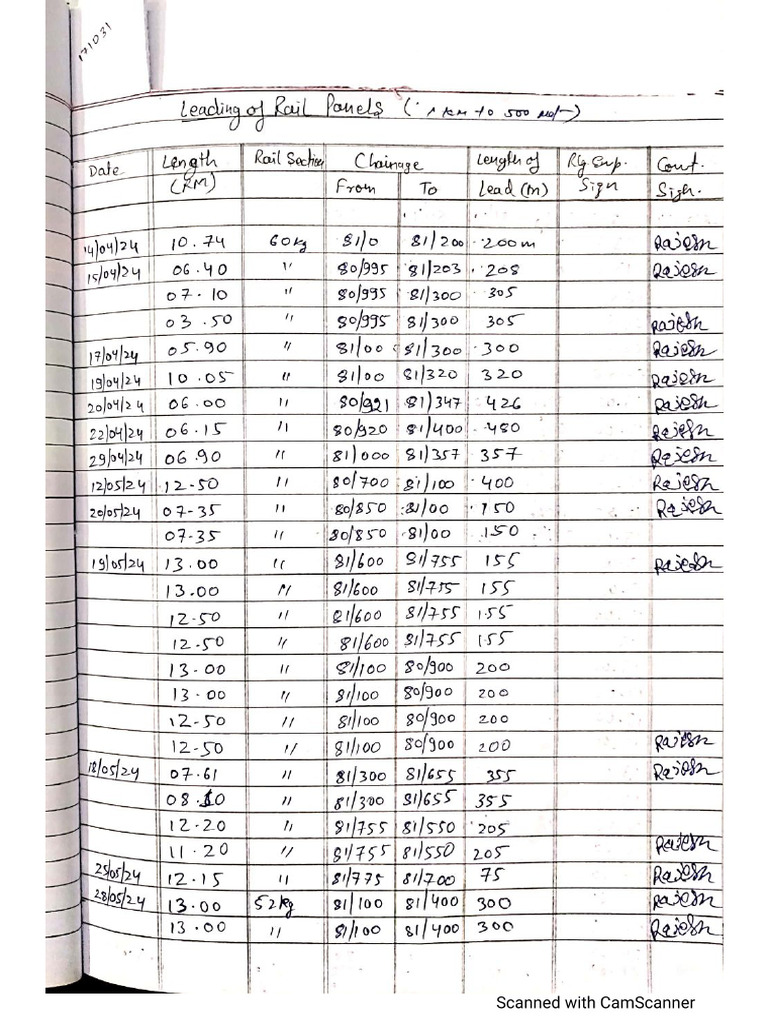 171031
Leading of Rail Panels ( 1 KM to 500 )
Date Length (RM) Rail Section Chainage From To Length of Lead (m) Rly Sup. Sign Cont. Sign.
14/04/24 10.74 60kg 81/0 81/200 200m Rajesh
15/04/24 06.40 " 80/995 81/203 208 Rajesh
07.10 " 80/995 81/300 305
03.50 " 80/995 81/300 305 Rajesh
17/04/24 05.90 " 81/00 81/300 300 Rajesh
19/04/24 10.05 " 81/00 81/320 320 Rajesh
20/04/24 06.00 " 80/921 81/347 426 Rajesh
22/04/24 06.15 " 80/920 81/400 480 Rajesh
29/04/24 06.90 " 81/000 81/357 357 Rajesh
12/05/24 12.50 " 80/700 81/100 400 Rajesh
20/05/24 07-35 " 80/850 81/00 150 Rajesh
07-35 " 80/850 81/00 150
19/05/24 13.00 " 81/600 81/755 155 Rajesh
13.00 " 81/600 81/755 155
12-50 " 81/600 81/755 155
12-50 " 81/600 81/755 155
13.00 " 81/100 80/900 200
13.00 " 81/100 80/900 200
12-50 " 81/100 80/900 200
12-50 " 81/100 80/900 200 Rajesh
18/05/24 07.61 " 81/300 81/655 355 Rajesh
08.10 " 81/300 81/655 355
12.20 " 81/755 81/550 205
11.20 " 81/755 81/550 205 Rajesh
25/05/24 12.15 " 81/775 81/700 75 Rajesh
28/05/24 13.00 52kg 81/100 81/400 300 Rajesh
13.00 " 81/100 81/400 300 Rajesh
Scanned with CamScanner